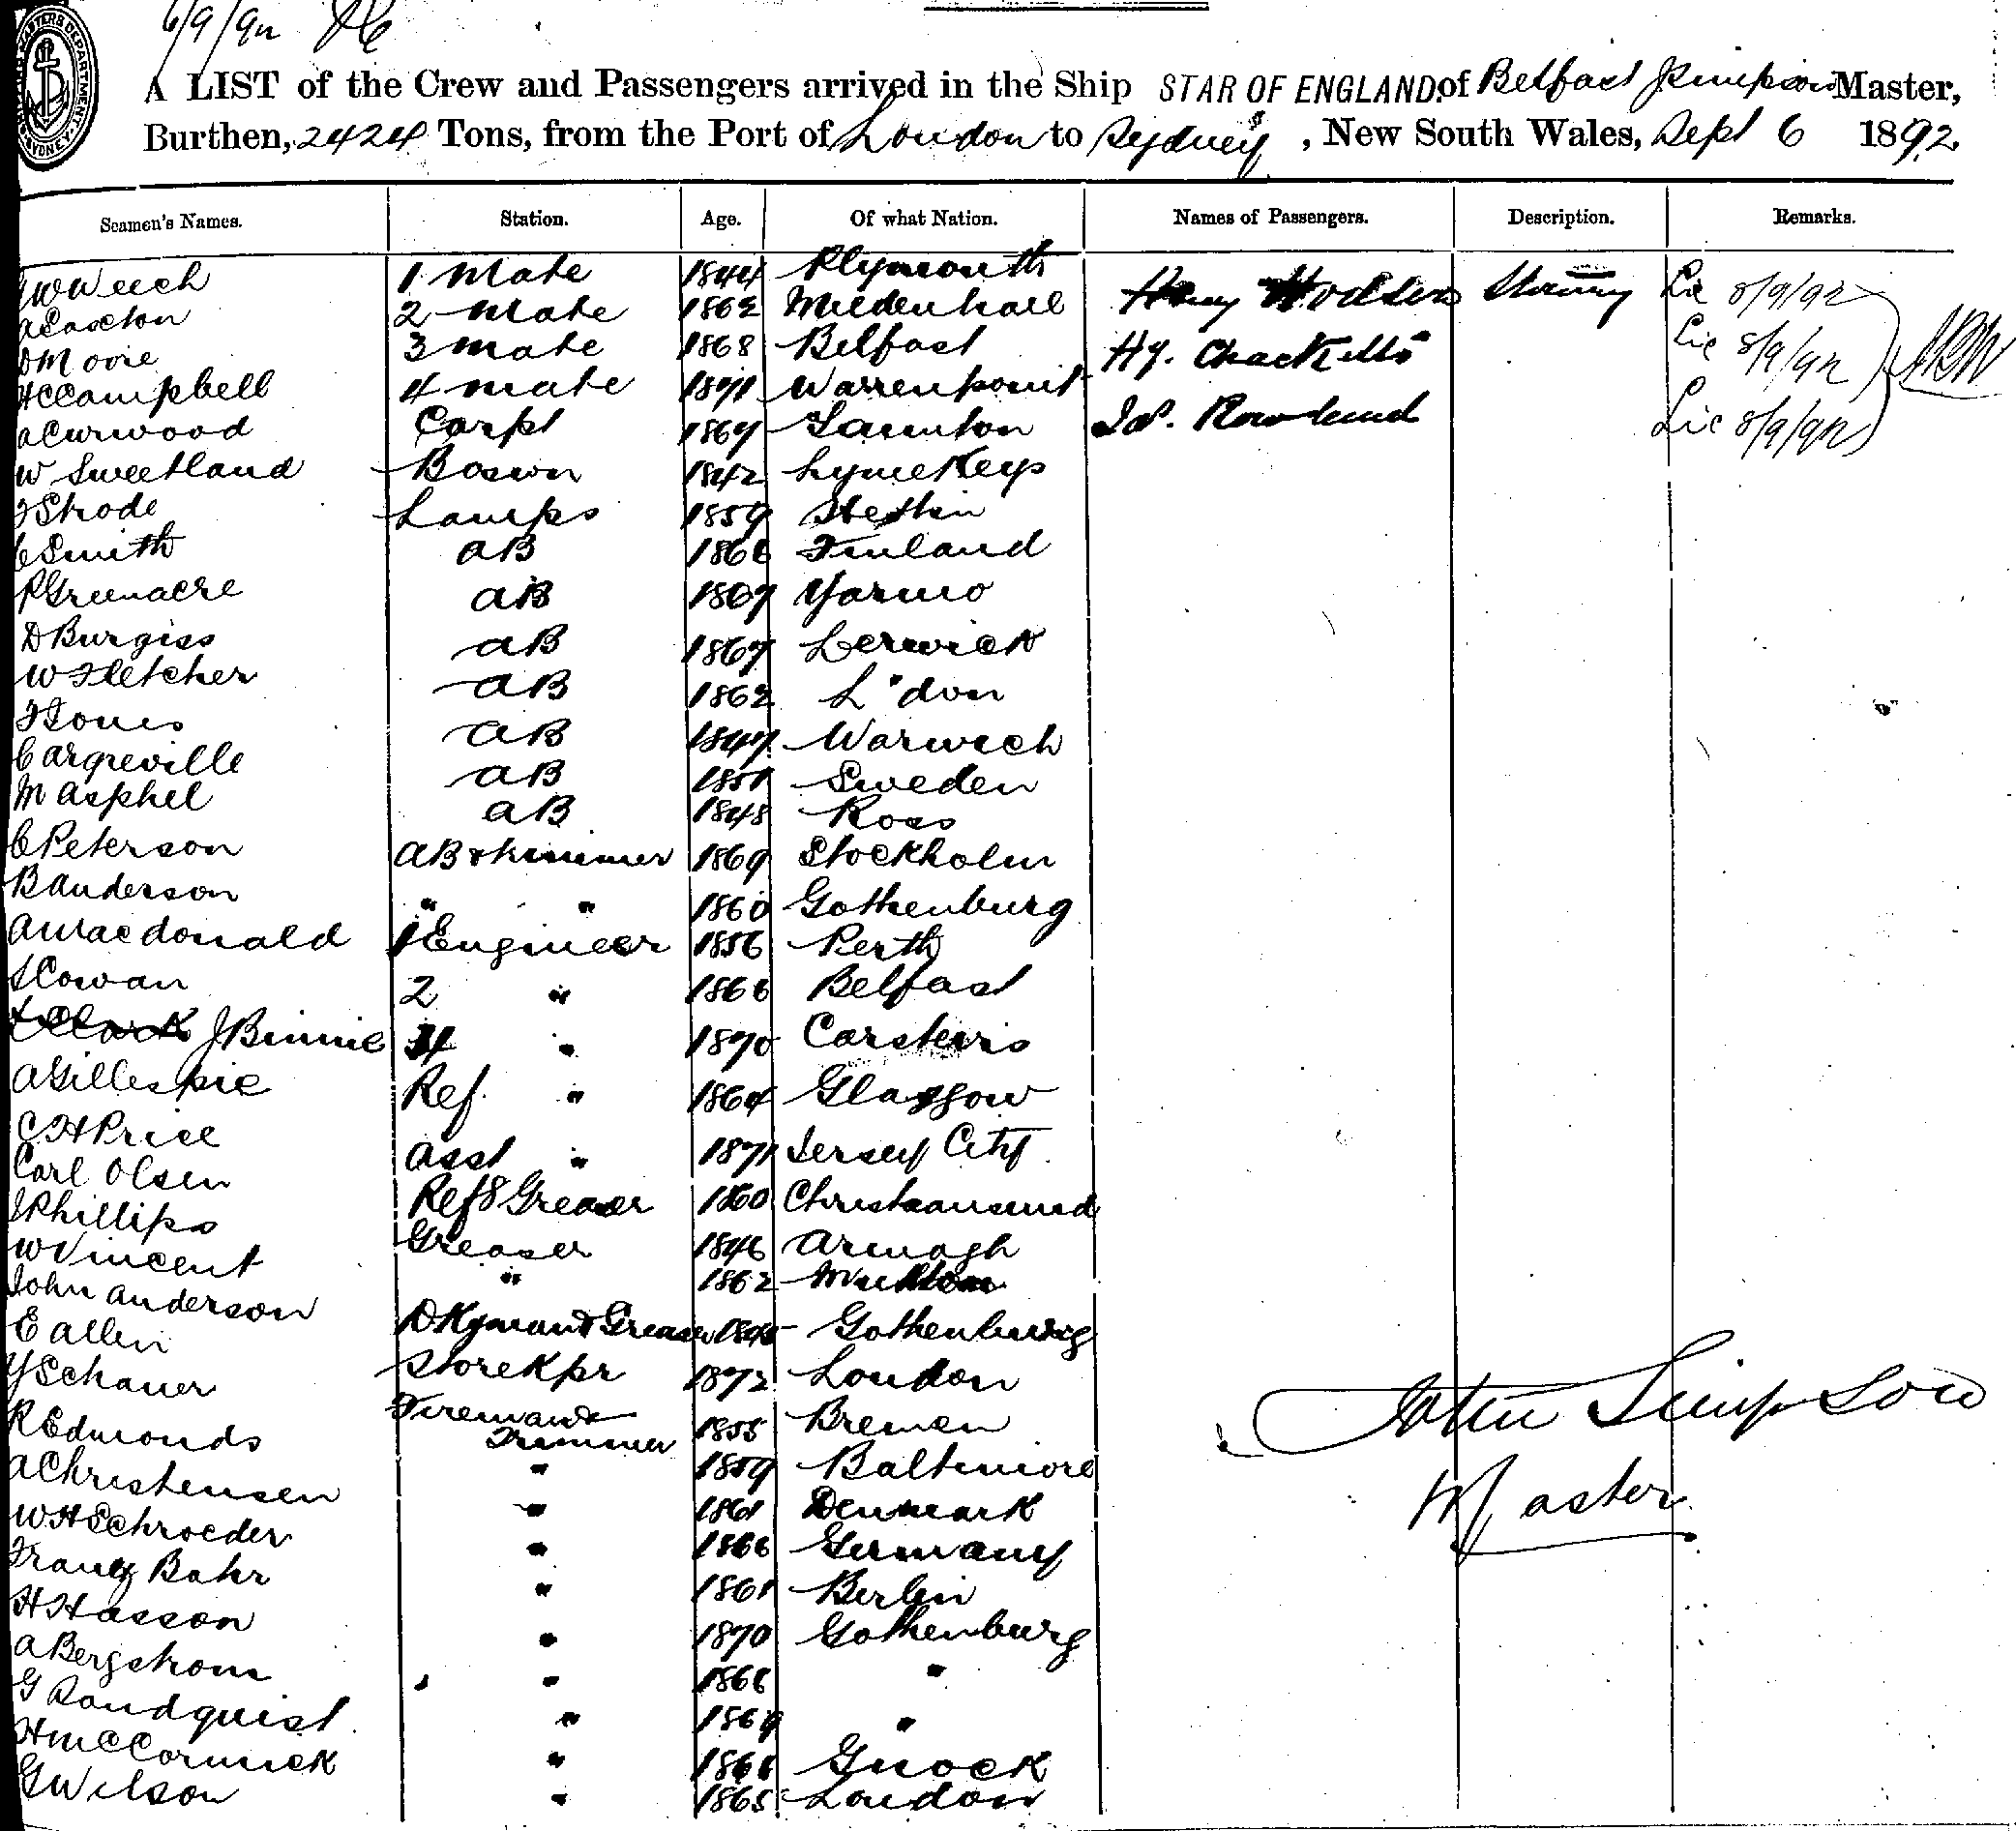 6/9/92
A LIST of the Crew and Passengers arrived in the Ship STAR OF ENGLAND of Belfast J Simpson Master,
Burthen, 2424 Tons, from the Port of London to Sydney, New South Wales, Sept 6 1892
Seamen's Names. Station. Age. Of what Nation. Names of Passengers. Description. Remarks.
W Veech 1 Mate 1844 Plymouth Henry Hodson Lic 8/9/92
A Saxton 2 Mate 1862 Mildenhall
D Moore 3 mate 1868 Belfast Hy. Lic 8/9/92
H C Campbell 4 mate 1871 Warrenpoint
A Curwood Carpt 1867 Taunton Jas. Rowland Lic 8/9/92
W Sweetland Bosun 1842 Lyme Regs
J Strode Lamps 1859 Stettin
C Smith AB 1866 Finland
P Greenacre AB 1867 Yarmo
D Burgiss AB 1867 Lerwick
W Fletcher AB 1862 L"don
J Jones AB 1847 Warwick
C Argreville AB 1851 Sweden
M Asphel AB 1848 Ross
C Peterson AB & trimmer 1869 Stockholm
B Anderson " " 1860 Gothenburg
A Macdonald 1 Engineer 1856 Perth
J Cowan 2 " 1866 Belfast
Clark J Binnie 4 " 1870 Carsteirs
A Gillespie Ref. " 1864 Glasgow
C H Price Asst " 1871 Jersey City
Carl Olsen Ref & Greaser 1860 Christiansund
J Phillips Greaser 1846 Armagh
W Vincent " 1862
John Anderson DKyman & Greaser 1845 Gothenburg
E Allen StoreKpr 1872 London
Y Schauer Fireman & Trimmer 1855 Bremen
R Edmonds " 1859 Baltimore
A Christensen " 1861 Denmark
W H Schroeder " 1866 Germany
Franz Bahr " 1861 Berlin
H Hasson " 1870 Gothenburg
A Bergstrom " 1866 "
G Randquist " 1869 "
H McCormick " 1868 Gnock
G Wilson " 1865 London
John Simpson
Master